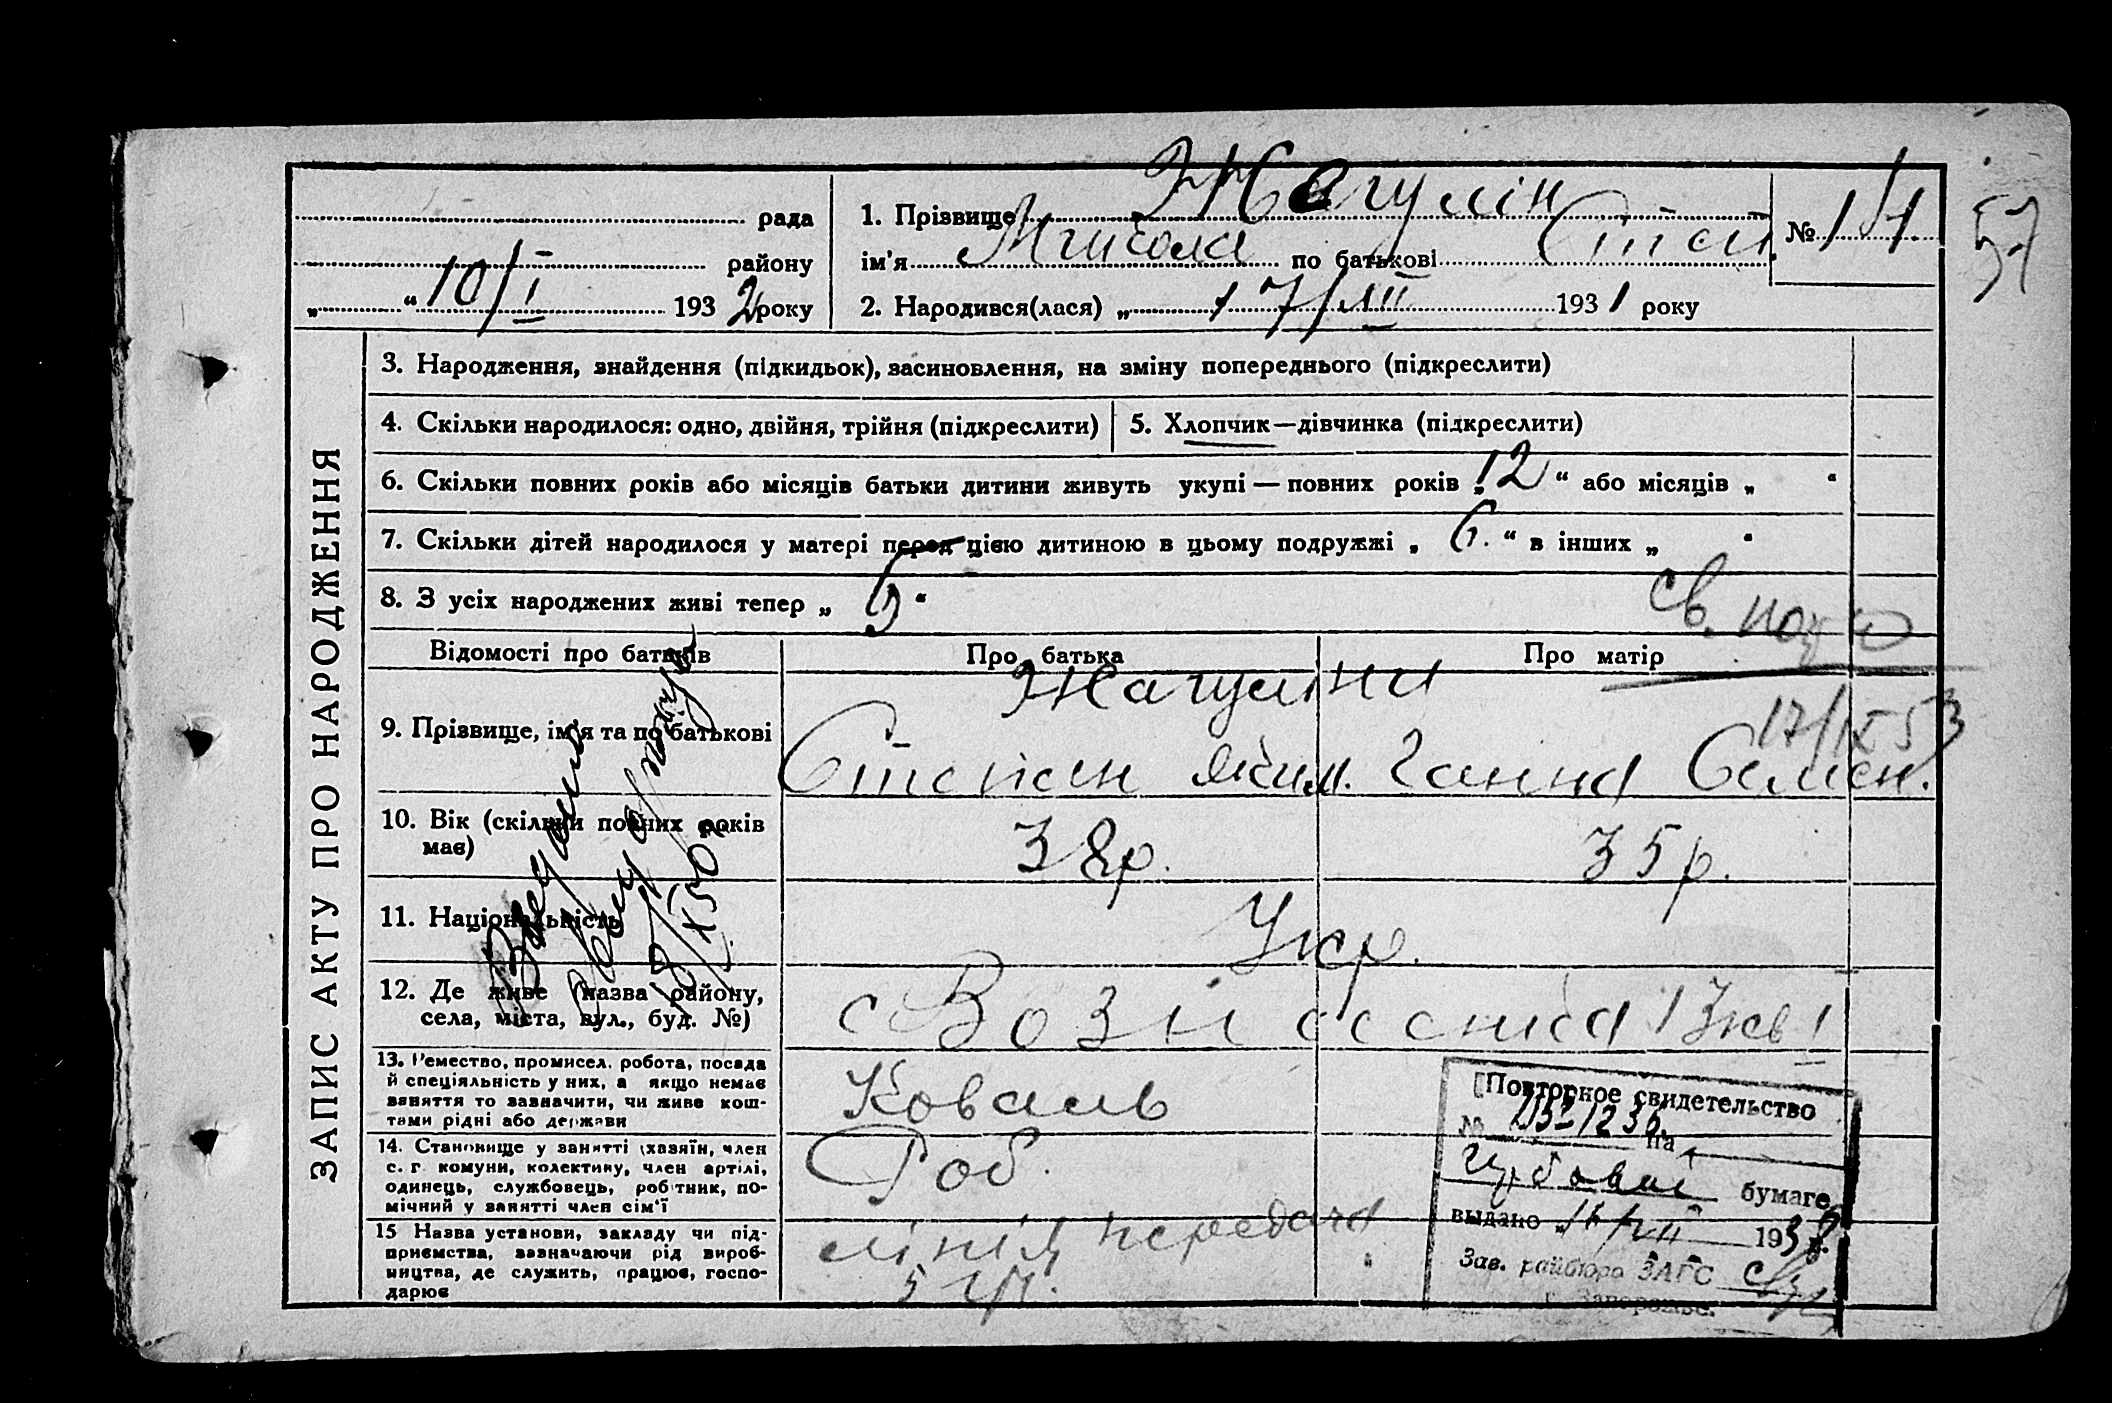 ЗАПИС АКТУ ПРО НАРОДЖЕННЯ
рада
району
„ “ 10/I 1932 року
1. Прізвище Жагулін
ім'я Микола по батькові Степ.
№
57
2. Народився(лася) „ 17/XII 1931 року
3. Народження, знайдення (підкидьок), засиновлення, на зміну попереднього (підкреслити)
4. Скільки народилося: одно, двійня, трійня (підкреслити)
5. Хлопчик—дівчинка (підкреслити)
6. Скільки повних років або місяців батьки дитини живуть укупі — повних років „ 12 “ або місяців „ “
7. Скільки дітей народилося у матері перед цією дитиною в цьому подружжі „ 6. “ в інших „ “
8. З усіх народжених живі тепер „ 5 “
св.
Відомості про батьків
Про батька
Про матір
9. Прізвище, ім'я та по батькові
Жагуліни
Степан Яким. Ганна Семен.
17/IX 53
10. Вік (скільки повних років
має)
38 р.
35 р.
11. Національність
Укр.
12. Де живе (назва району,
села, міста, вул., буд. №)
с Вознесенка
13. Ремество, промисел, робота, посада
й спеціяльність у них, а якщо немає
заняття то зазначити, чи живе кош-
тами рідні або держави
Коваль
14. Становище у занятті (хазяїн, член
с. г. комуни, колективу, член артілі,
одинець, службовець, робітник, по-
мічний у занятті член сім'ї
Роб.
15 Назва установи, закладу чи під-
приємства, зазначаючи рід вироб-
ництва, де служить, працює, госпо-
дарює
лінія передача
5
Повторное свидетельство
№ на
гербовой бумаге
выдано 193 г.
Зав. райбюро ЗАГС
г. Запорожье.